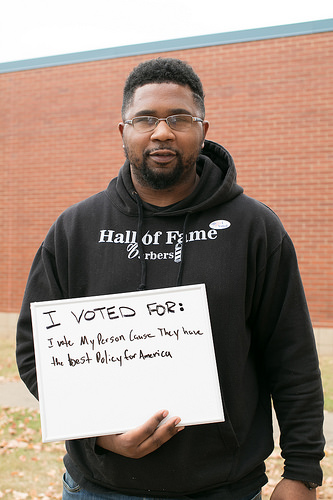 Hall of Fame
Barbers
I VOTED FOR:
I vote My Person Cause They have
the best Policy for America